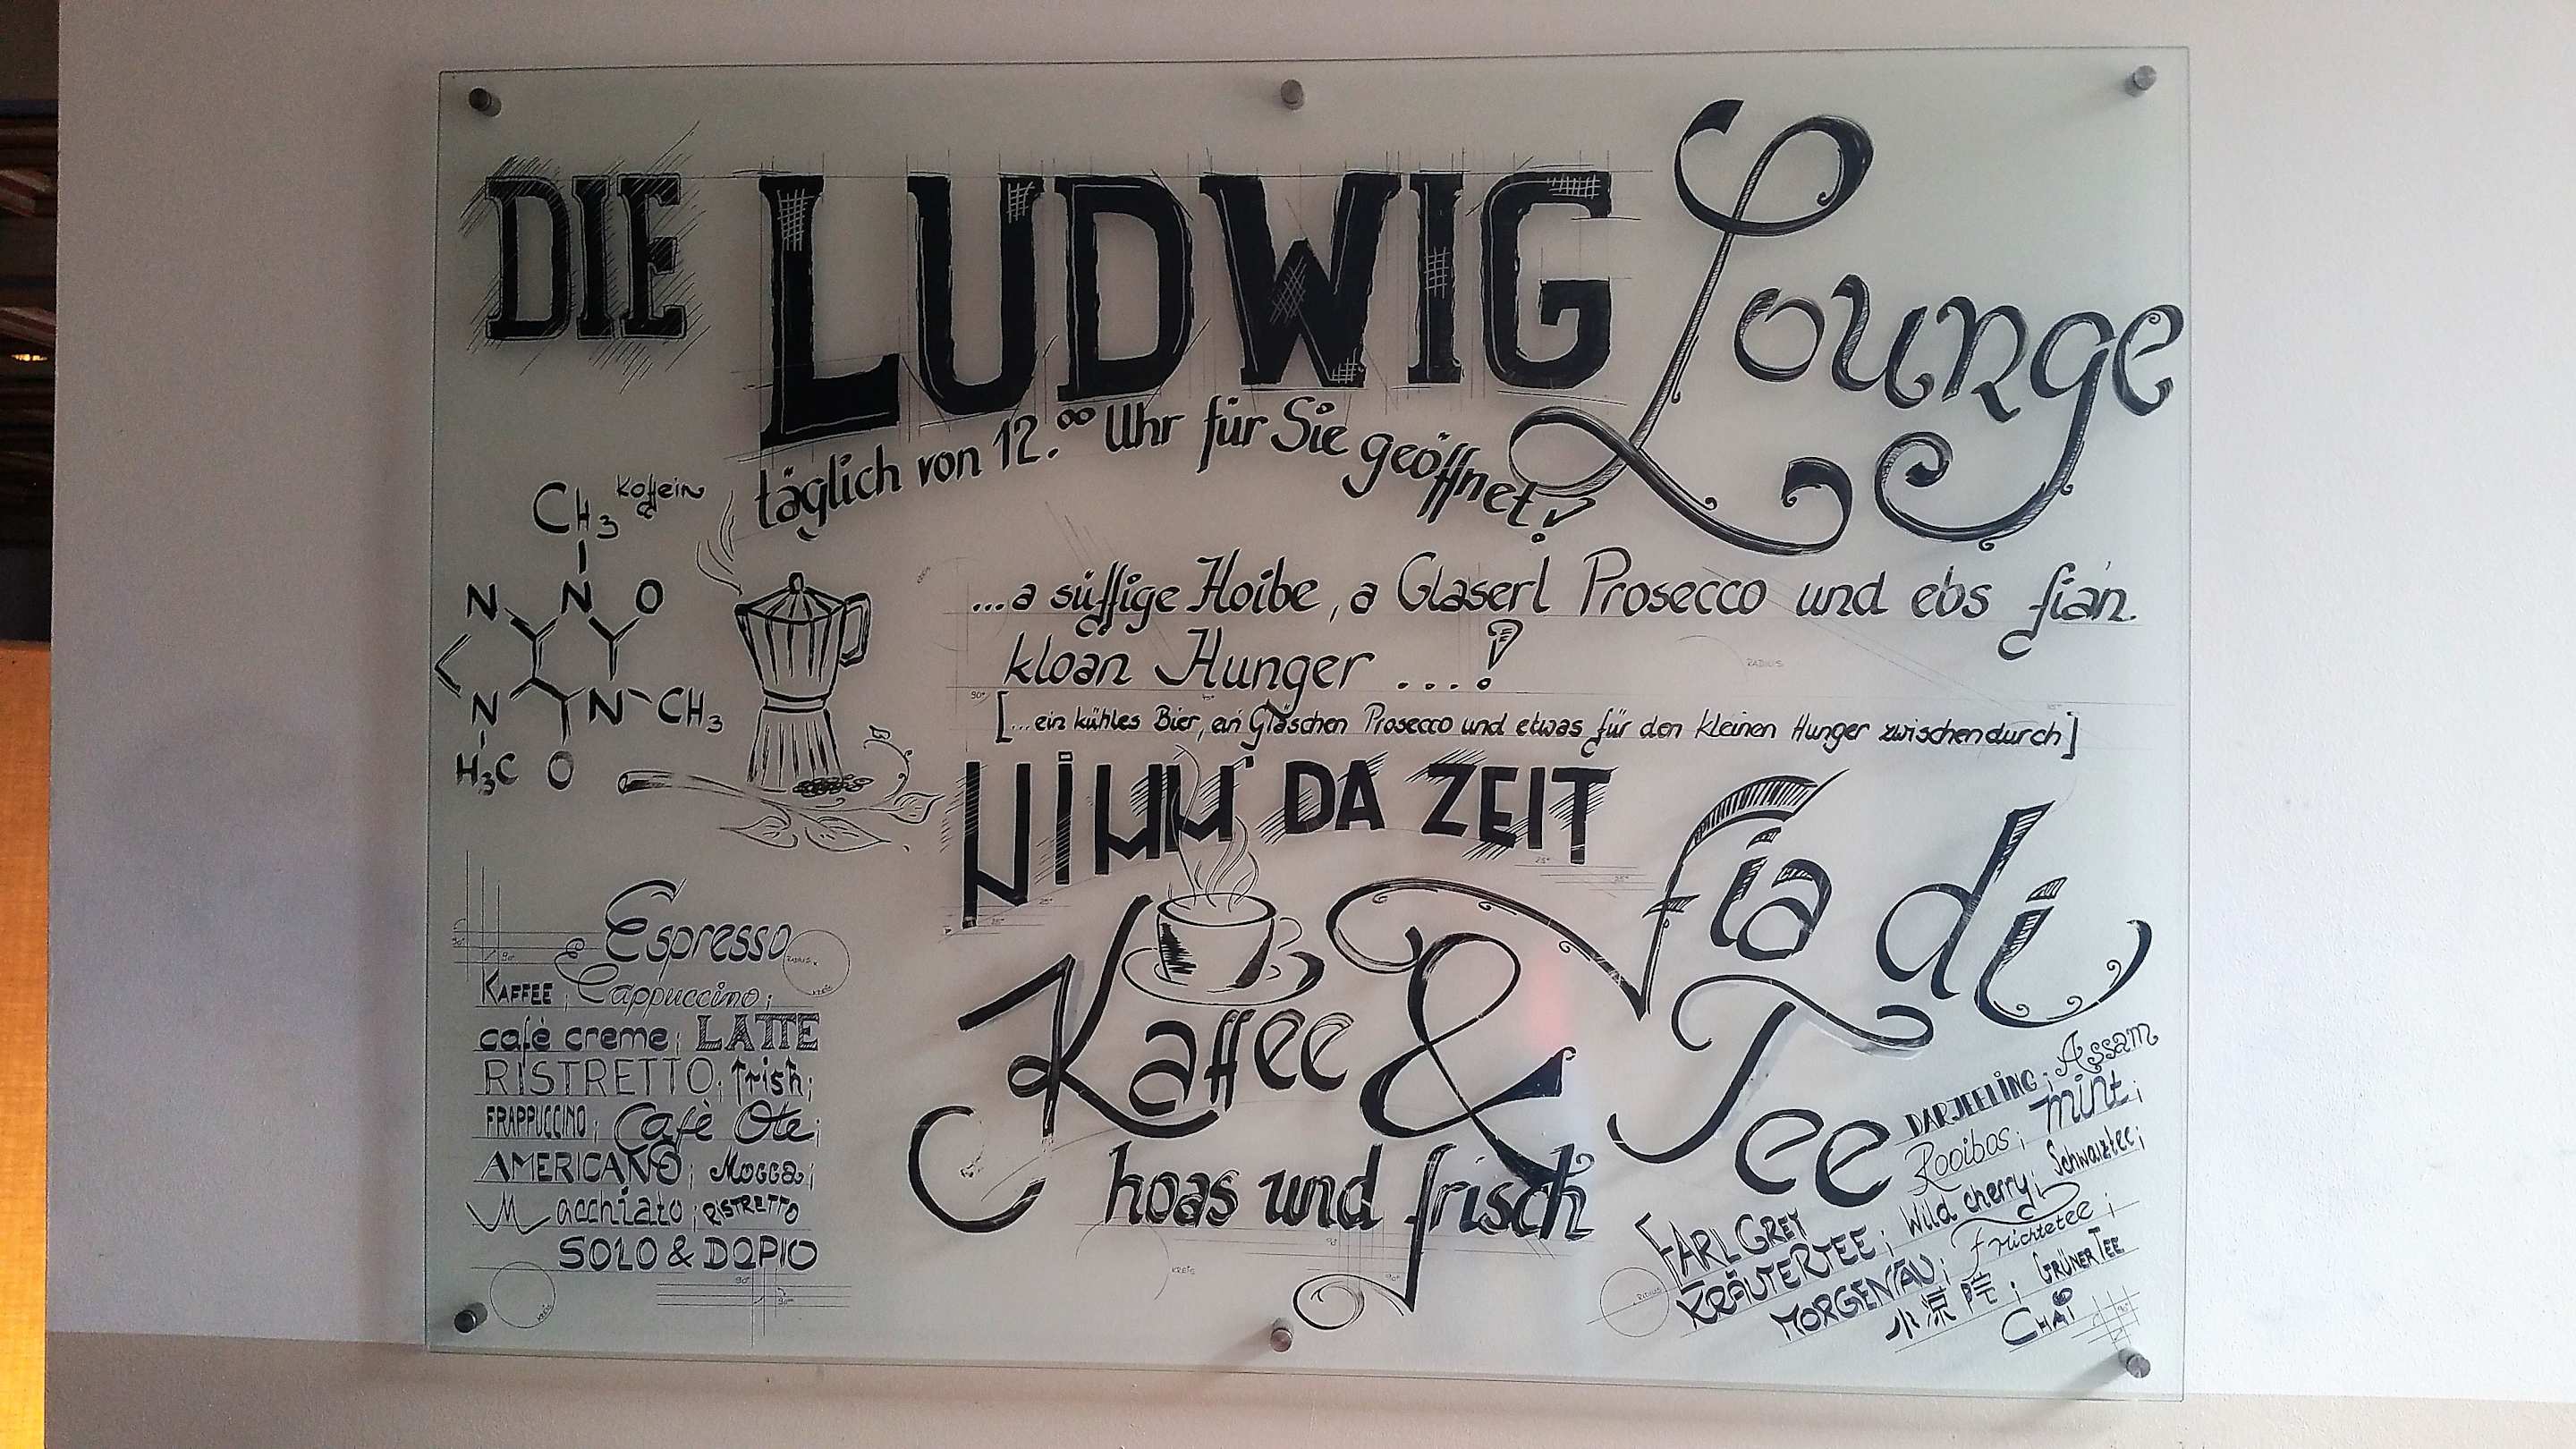 DIE LUDWIG Lounge
täglich von 12.00 Uhr für Sie geöffnet!
...a süffige Hoibe, a Glaserl Prosecco und ebs fian
kloan Hunger ...!
[...ein kühles Bier, ein Gläschen Prosecco und etwas für den kleinen Hunger zwischendurch]
Koffein
CH3
N N O
N N CH3
H3C O
NIMM' DA ZEIT
Fia di
Kaffee & Tee
hoas und frisch
Espresso
KAFFEE; Cappuccino;
cafè creme; LATTE
RISTRETTO; frisch;
FRAPPUCCINO; Cafè Ole;
AMERICANO; Mogga;
Macchiato; RISTRETTO
SOLO & DOPIO
DARJEELING; Assam
Rooibos; mint;
EARL GREY Wild cherry; Schwarztee;
KRÄUTERTEE; Früchtetee;
MORGENTAU; GRÜNER TEE
小凉院;
CHAI
RADIUS
KREIS
90°